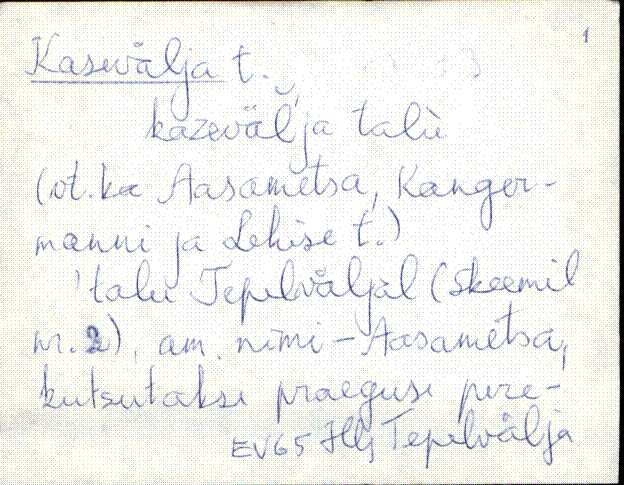 1
Kasevälja t.
kazevälja talu
(vt. ka Aasametsa, Kanger-
manni ja Lehise t.)
'talu Tepelväljal (skeemil
nr. 2), am. nimi - Aasametsa,
kutsutakse praeguse pere-
EV65 Hlj Tepelvälja